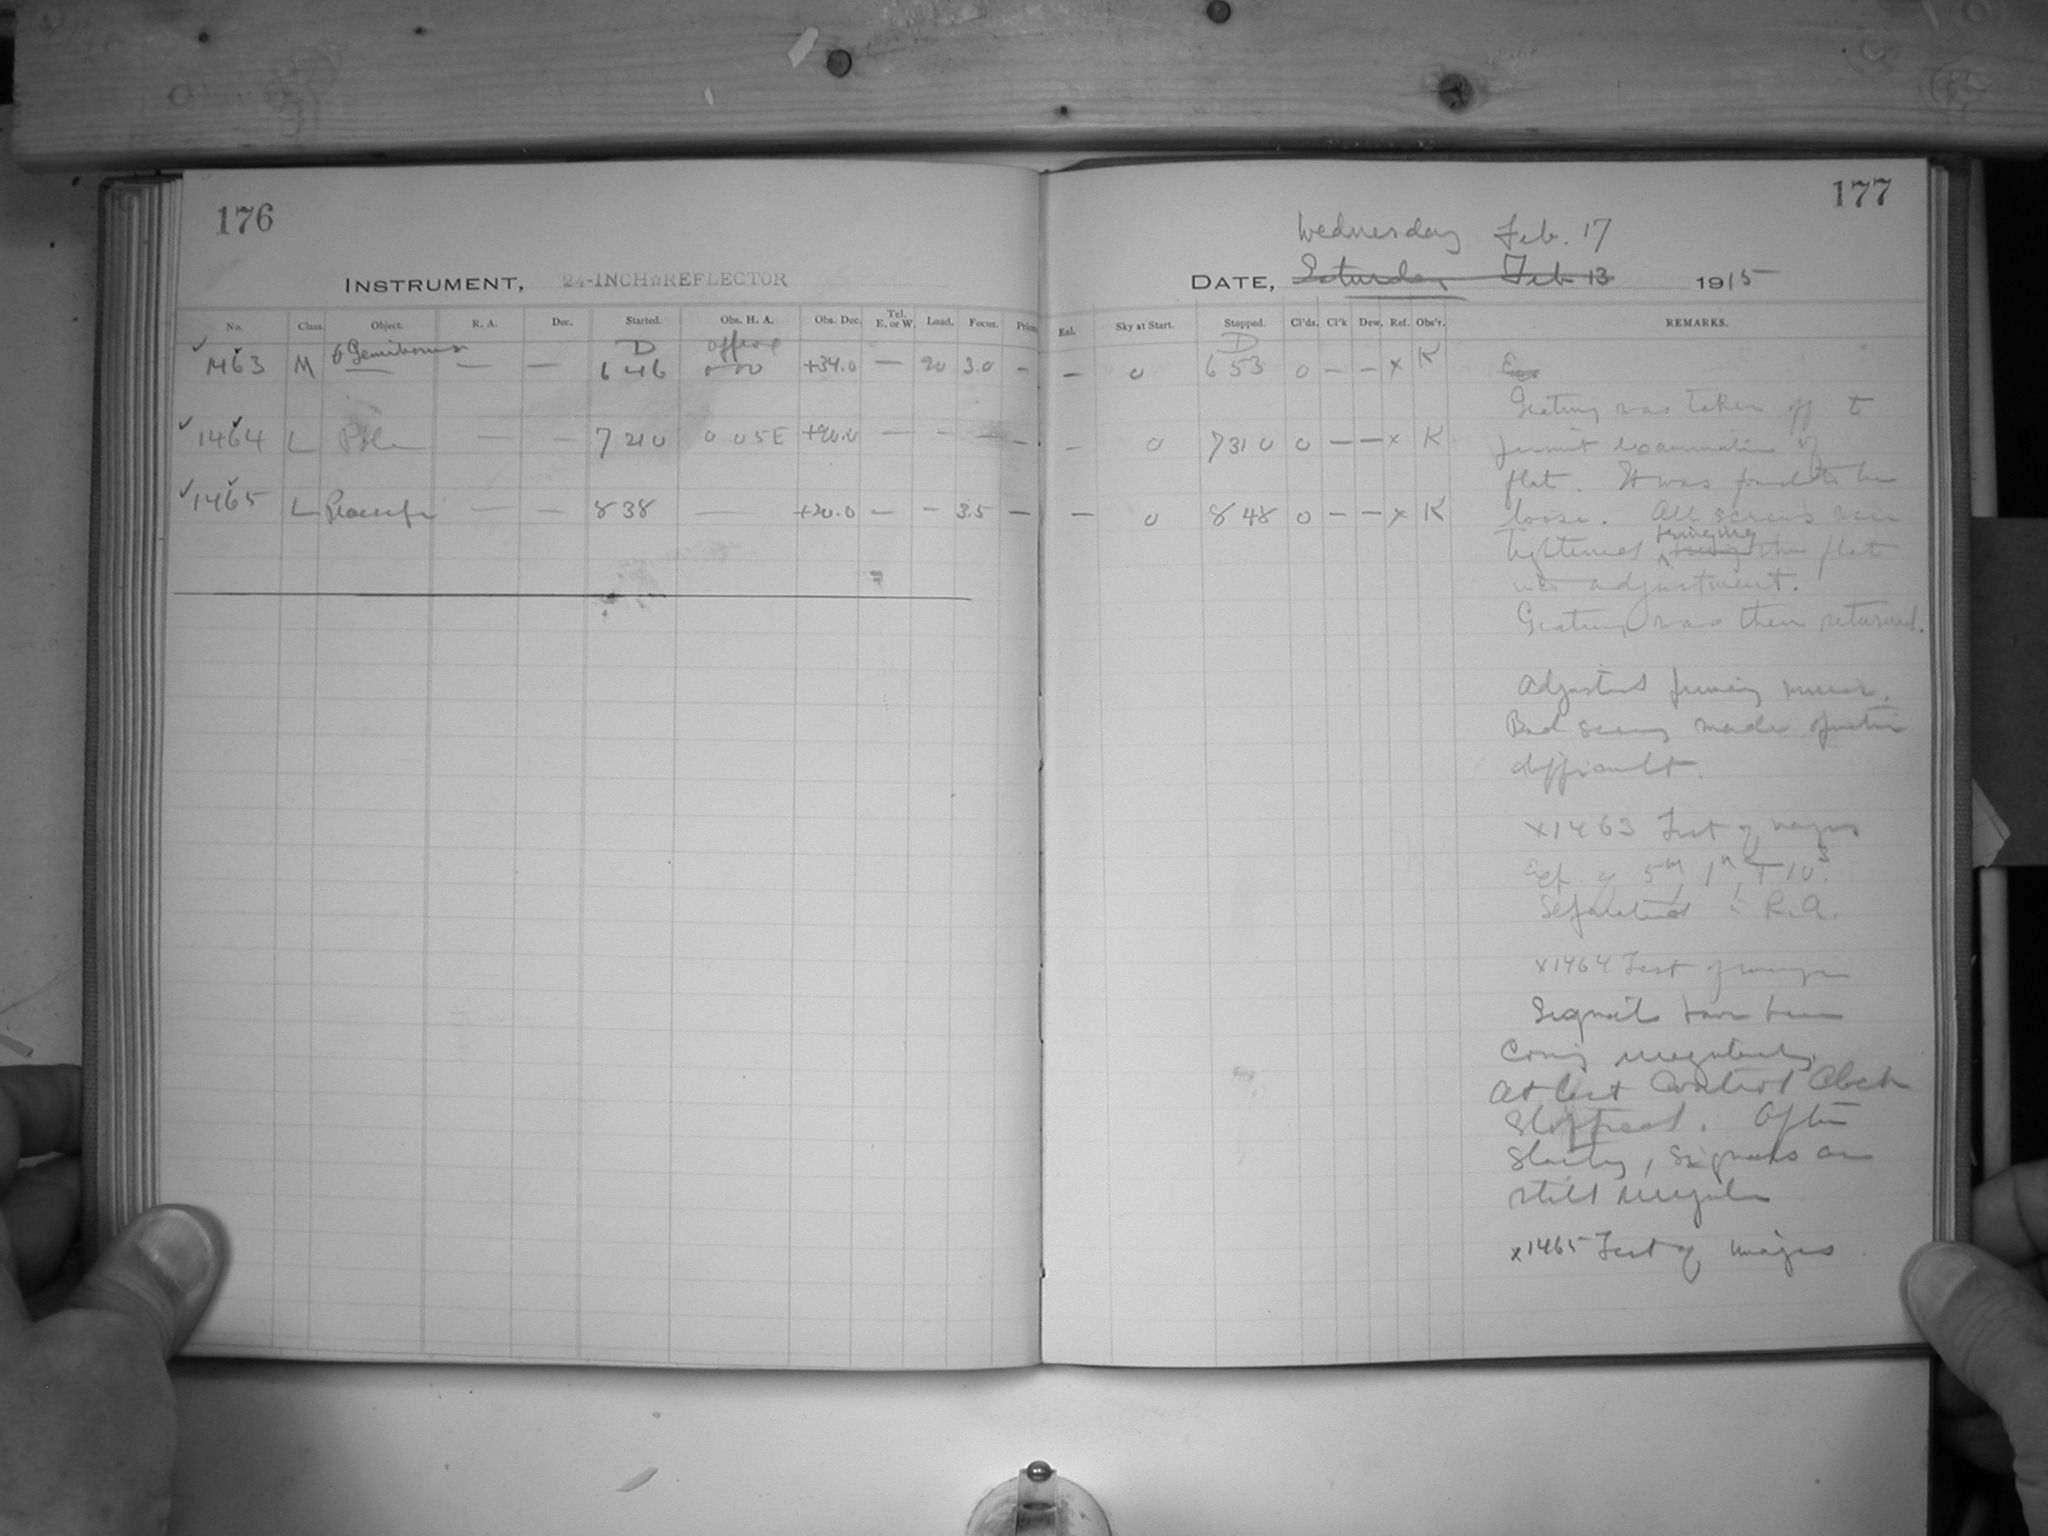 176
INSTRUMENT, 24-INCH☆REFLECTOR
No. Class. Object. R. A. Dec. Started. Obs. H. A. Obs. Dec. Tel. E. or W. Load. Focus.
1463 M θ Geminorum — — D 6 46 0 00 +34.0 — 20 3.0 -
1464 L Pole — — 7 21 0 0 05 E +90.0 — - — -
1465 L — — 8 38 — +20.0 — - 3.5 —
177
Wednesday Feb. 17
DATE, Saturday Feb 13 1915
Sky at Start. Stopped. Cl'ds. Cl'k Dew. Ref. Obs'r. REMARKS.
— 0 D 6 53 0 — — x K
- 0 7 31 0 0 — — x K
— 0 8 48 0 — — x K
Grating was taken off to
permit examination of
flat. It was found to be
loose. All screws were
tightened bringing the flat
into adjustment.
Grating was then returned.
Adjusted primary mirror.
Bad seeing made
difficult.
x1463 Test of images
Exp. of 5m, 1m, + 10s.
Separated in R.A.
x1464 Test of images
Signals have been
coming irregularly.
At last Control Clock
stopped. After
starting, signals are
still irregular
x1465 Test of images